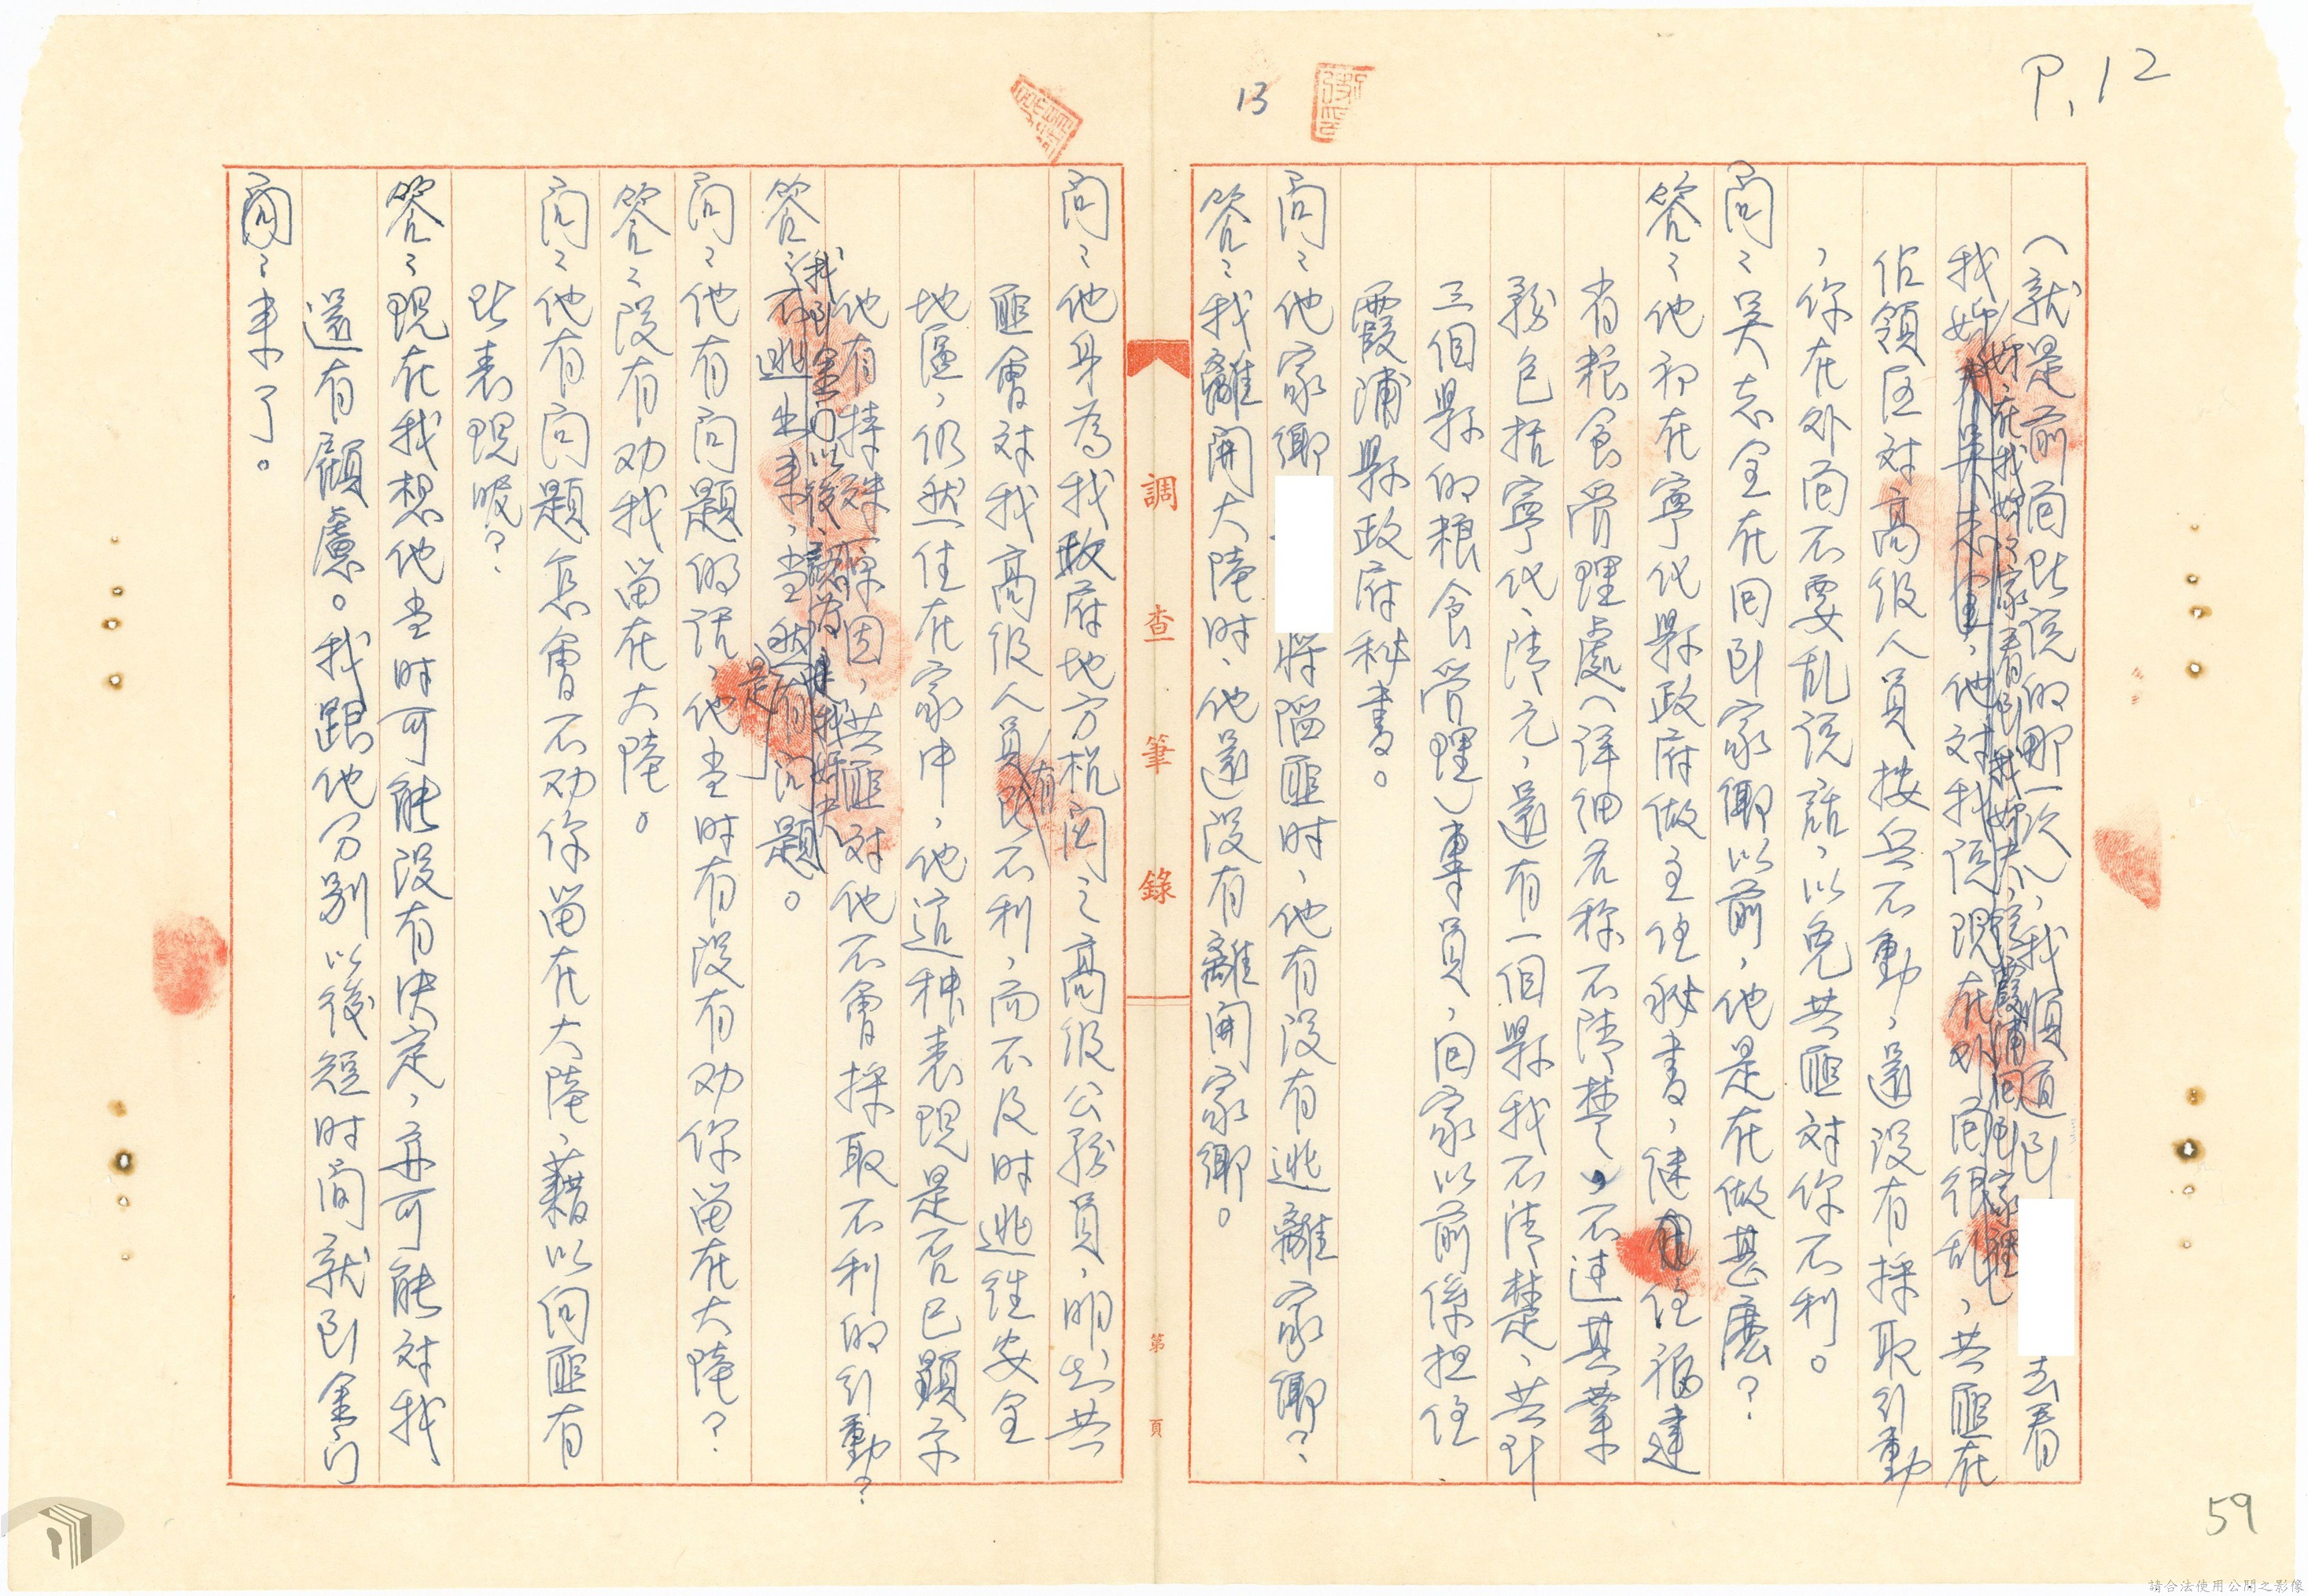 P.12
13
(就是前面所說的那一次),我順道到　　去看
我姊夫吳志全,他對我說現在外面很乱,共匪在
姊,在我姊姊家看到我姊夫,從霞浦回到家裡
佔領區对高級人員按兵不動,還沒有採取引動
,你在外面不要乱說話,以免共匪对你不利。
問:吳志全在回到家鄉以前,他是在做甚麼?
答:他初在寧化縣政府做主任秘書,健任福建
省粮食管理處(詳細名称不清楚),不过其業
務包括寧化、清元、還有一個縣我不清楚,共計
三個縣的粮食管理)專員,回家以前係担任
霞浦縣政府秘書。
問:他家鄉　　將陷匪時,他有沒有逃離家鄉?
答:我離開大陸时,他還沒有離開家鄉。
調查筆錄
第　頁
問:他身為我政府地方机関之高级公務員,明知共
匪會对我高级人員有不利,而不及时逃往安全
地區,仍然住在家中,他這种表現是否已顯示
他有特殊原因,共匪对他不會採取不利的引動?
我到金門以後,認為我姊夫
答:不逃出來,当然是有问題。
問:他有问題的话,他当时有沒有劝你留在大陸?
答:沒有劝我留在大陸。
問:他有问題怎會不劝你留在大陸,藉以向匪有
所表現呢?
答:現在我想他当时可能沒有決定,亦可能对我
還有顧慮。我跟他分别以後短时间就到金门
來了。
問:
59
請合法使用公開之影像